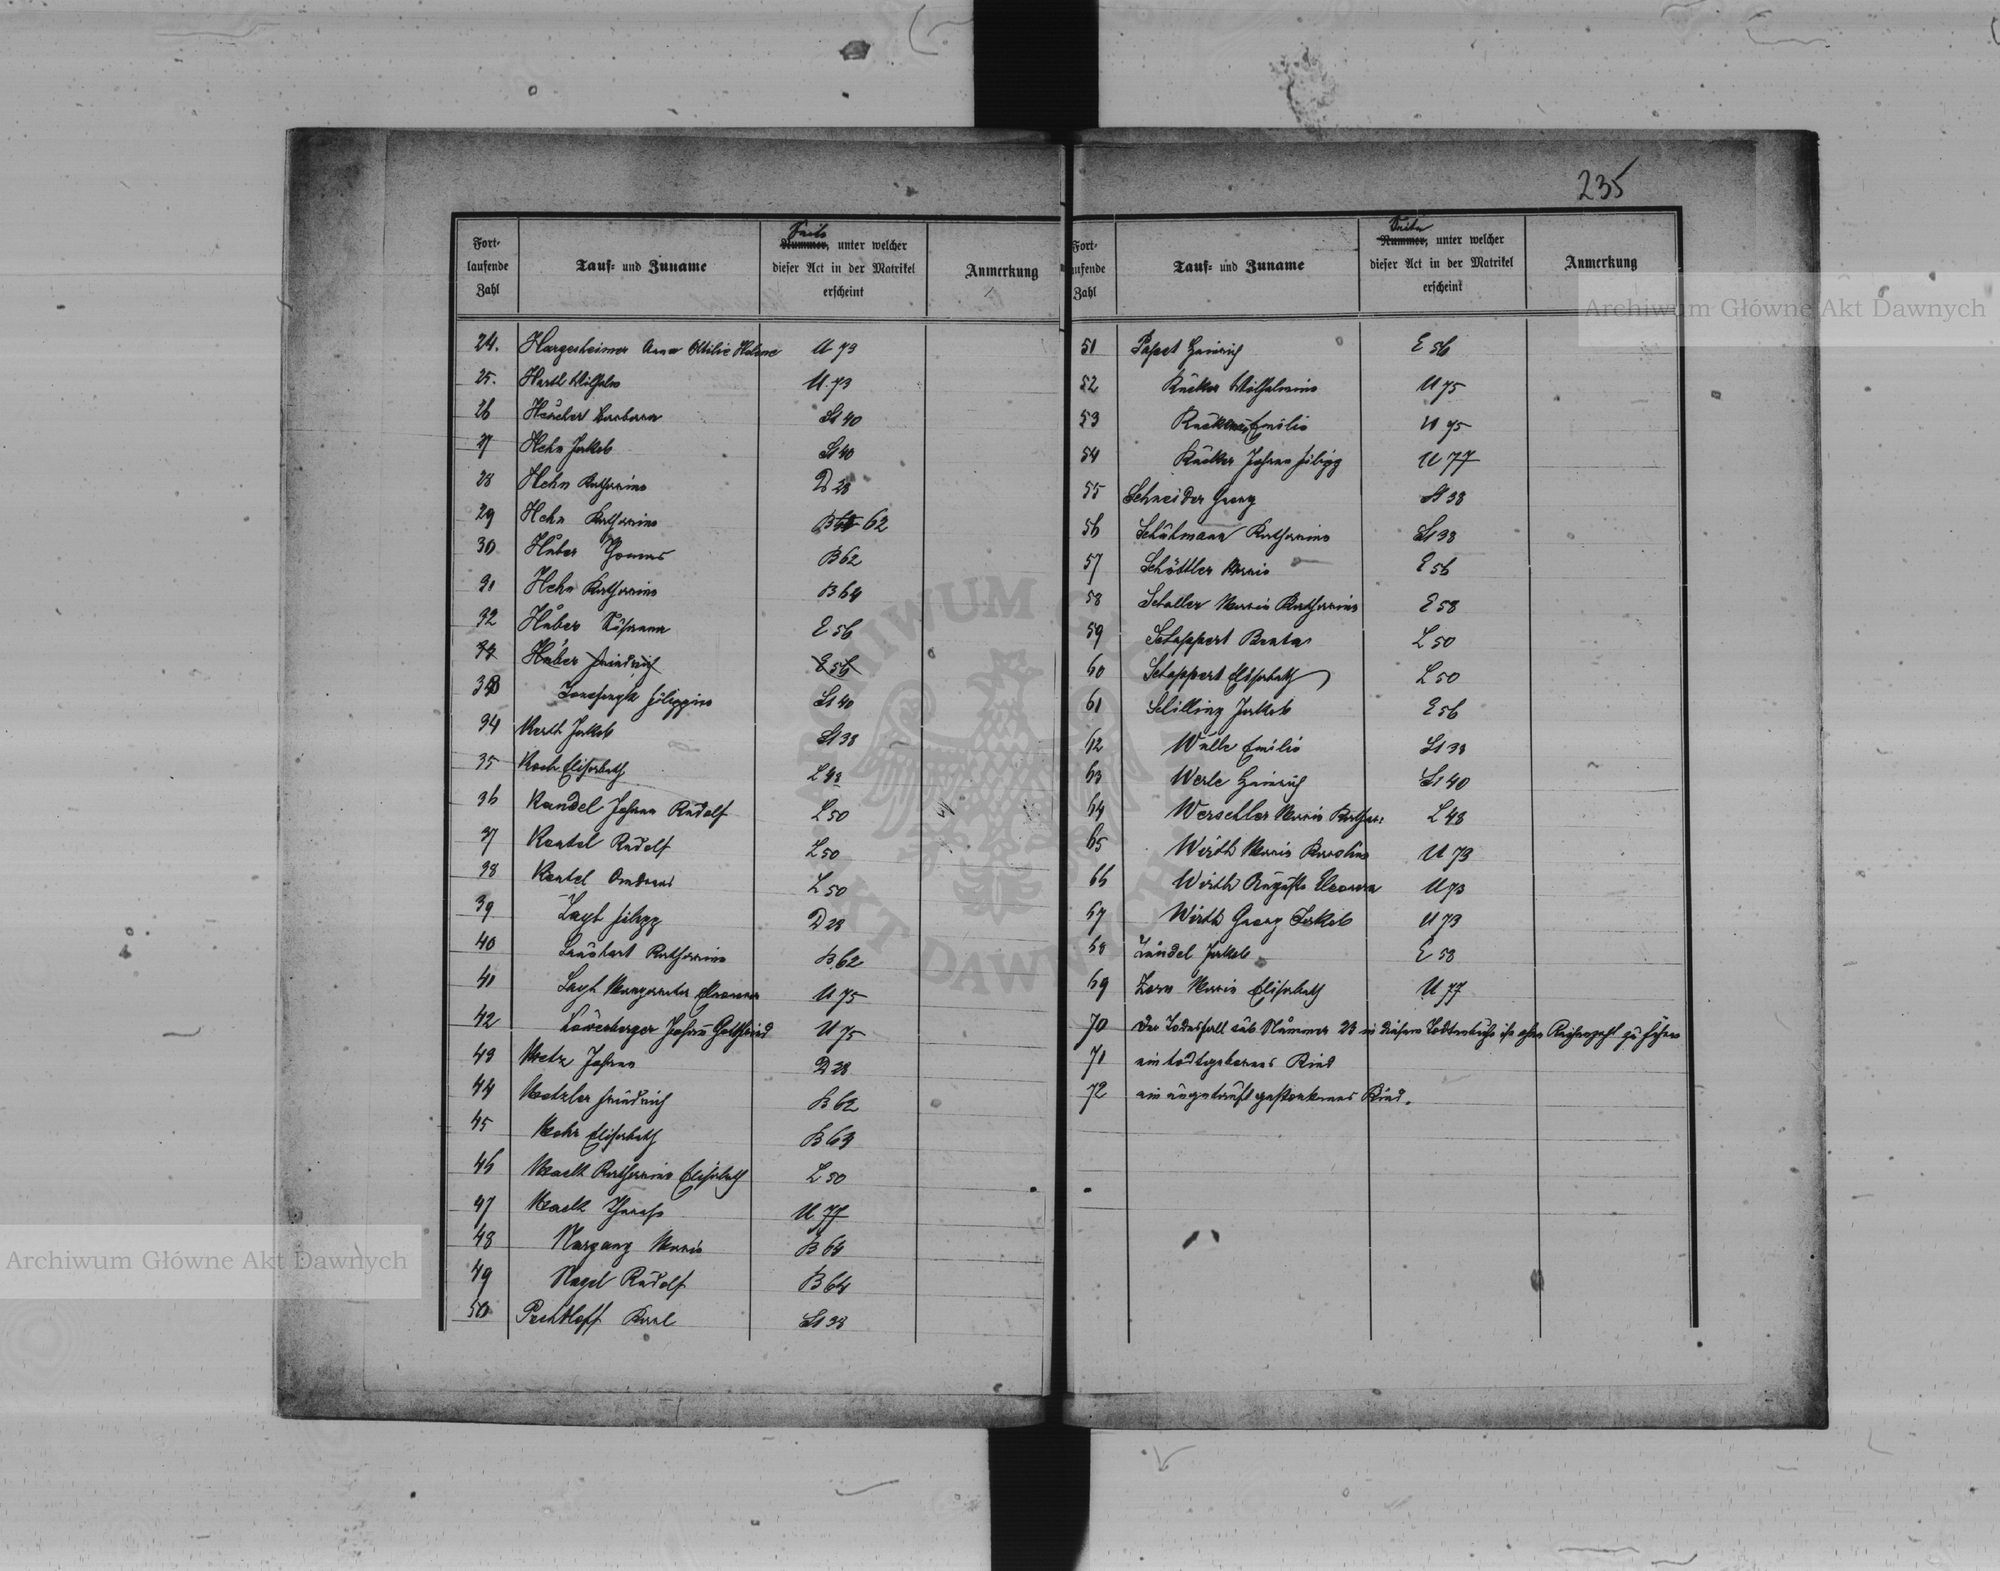 235
Fort-
laufende
Zahl
Tauf- und Zuname
Seite
Nummer, unter welcher
dieser Act in der Matrikel
erscheint
Anmerkung
24. Hargesheimer Anna Ottilie Helene U 73
25. Hartl Wilhelm U 73
26 Barbara St 40
27 Hehn Jakob St 40
28 Hehn Katharina D 28
29 Hehn Katharina B 62
30 Huber Thomas B 62
31 Hehn Katharina B 64
32 Huber Susanna E 56
33 Huber Friedrich E 56
33 Filippine St 40
34 Jakob St 38
35 Koch Elisabeth L 48
36 Kandel Johann Rudolf L 50
37 Rudolf L 50
38 Andreas L 50
39 Filipp D 28
40 Katharina B 62
41 Margaretha Eleonora U 75
42 Johann Gottfried U 75
43 Metz Johann D 28
44 Metzler Friedrich B 62
45 Mohr Elisabeth B 63
46 Mack Katharina Elisabeth L 50
47 Mack U 77
48 Nargang Maria B 64
49 Nagel Rudolf B 64
50 Pechkopf Karl St 38
Fort-
laufende
Zahl
Tauf- und Zuname
Seite
Nummer, unter welcher
dieser Act in der Matrikel
erscheint
Anmerkung
51 Heinrich E 56
52 Rücker Wilhelmine U 75
53 Emilie U 75
54 Rücker Johann Filipp U 77
55 Schneider Georg St 38
56 Schuhmann Katharina St 38
57 Schöttler Maria E 56
58 Schaller Maria Katharina E 58
59 Schappert Beata L 50
60 Schappert Elisabeth L 50
61 Schilling Jakob E 56
62 Emilie St 38
63 Werle Heinrich St 40
64 Werschler Maria Kathar: L 48
65 Wirth Maria Karolina U 73
66 Wirth Auguste Eleonora U 73
67 Wirth Georg Jakob U 73
68 Zündel Jakob E 58
69 Zorn Maria Elisabeth U 77
70 Der Todesfall sub Nummer 23 in diesem Todtenbuche ist ohne
71 ein todtgeborenes Kind
72 ein ungetauft gestorbenes Kind.
Archiwum Główne Akt Dawnych
Archiwum Główne Akt Dawnych